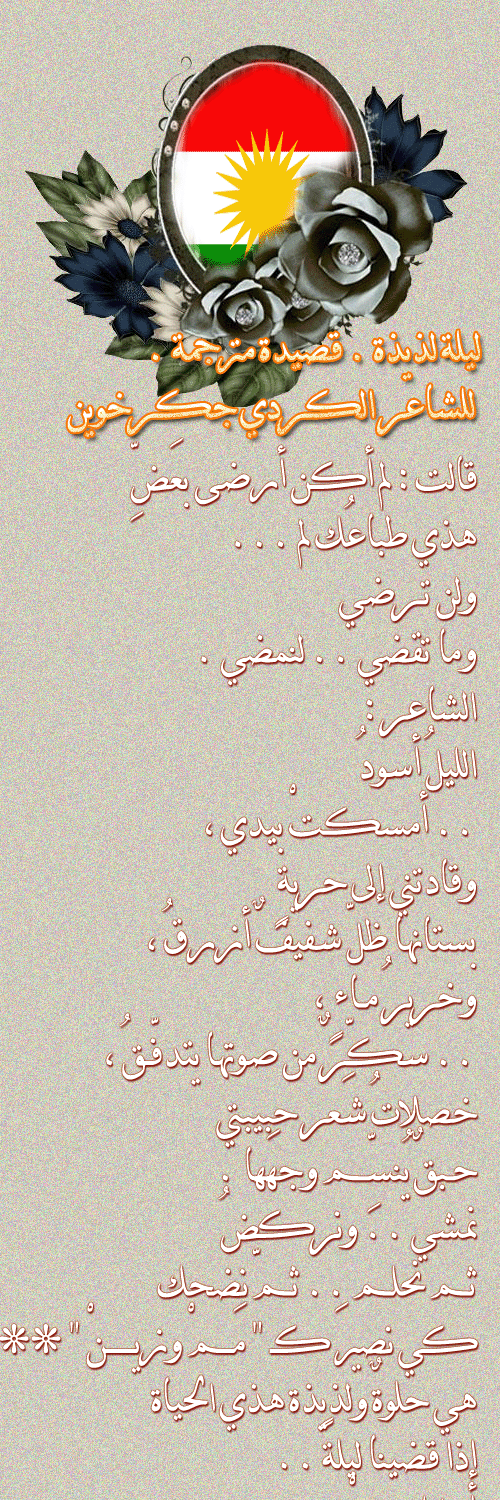 ليلة لذيذة . قصيدة مترجمة .
للشاعر الكردي جكرخوين
قالت : لم أكن أرضى بعَضِّ
هذي طباعُك لم . . .
ولن ترضي
وما تقضي . . لنمضي .
الشاعر :
الليلُ أسودُ
. . أمسكتْ بيدي ،
وقادتني إلى حربةٍ
بستانها ظلٌّ شفيفٌ أزرقُ ،
وخرير ماءٍ ،
. . سكّرٌ من صوتها يتدفّقُ ،
خصلاتُ شعر حبيبتي
حبقٌ ينسّم وجهها .
نمشي . . ونركضُ
ثم نحلم . . ثم نضحك
كي نصير كـ " مـمْ وزيـنْ " **
هي حلوة ولذيذة هذي الحياة
إذا قضينا ليلةً . .